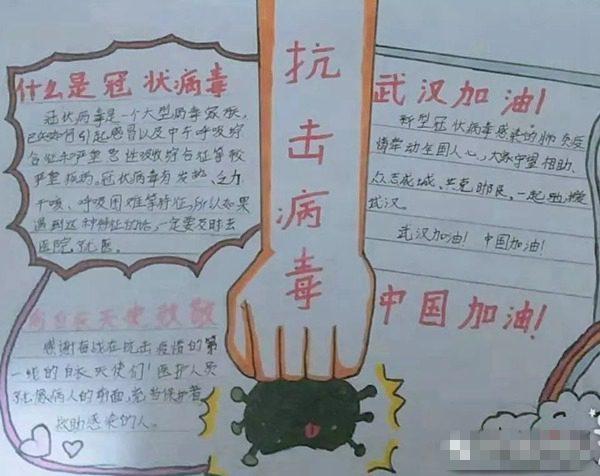 抗击病毒
什么是冠状病毒
冠状病毒是一个大型病毒家族,
已知可引起感冒以及中东呼吸综
合征和严重急性呼吸综合征等较
严重疾病。冠状病毒有发热、乏力、
干咳、呼吸困难等特征,所以如果
遇到这种特征的话,一定要及时去
医院就医。
武汉加油!
新型冠状病毒感染的肺炎疫
情牵动全国人心,大家守望相助、
众志成城、共克时艰,一起驰援
武汉。
武汉加油! 中国加油!
中国加油!
向白衣天使致敬
感谢奋战在抗击疫情的第
一线的白衣天使们!医护人员
在病人的前面,
救助感染的人。